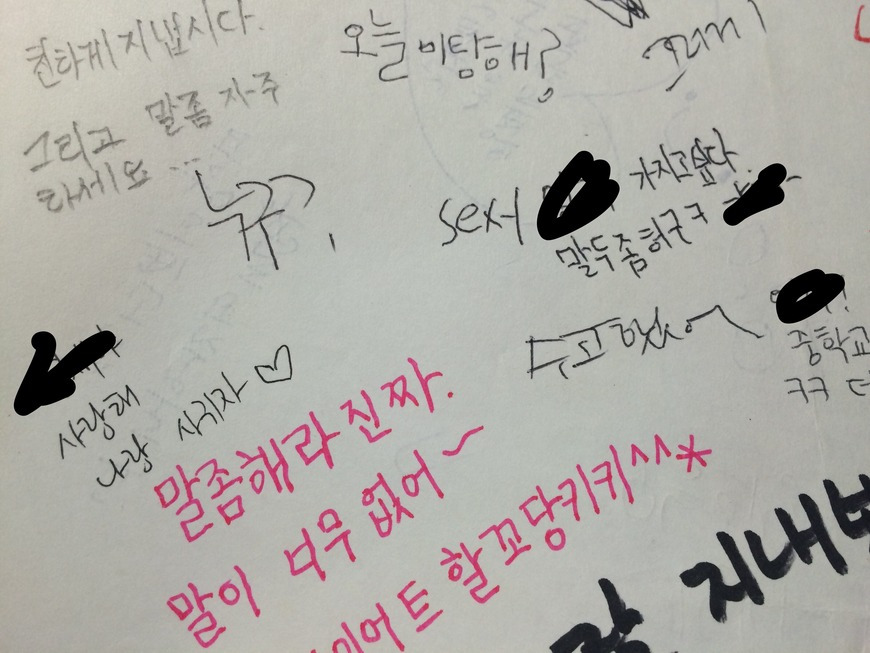 친하게 지냅시다.
그리고 말좀 자주
하세요...
오늘 미탐해?
누구?
sexy
가지고싶다
말두좀허구ㅋ
두고 있어
중학교
ㅋㅋ
사랑해
나랑 사귀자 ♡
말좀해라 진짜.
말이 너무 없어~
이어트 할꼬당키키^^*
잘 지내